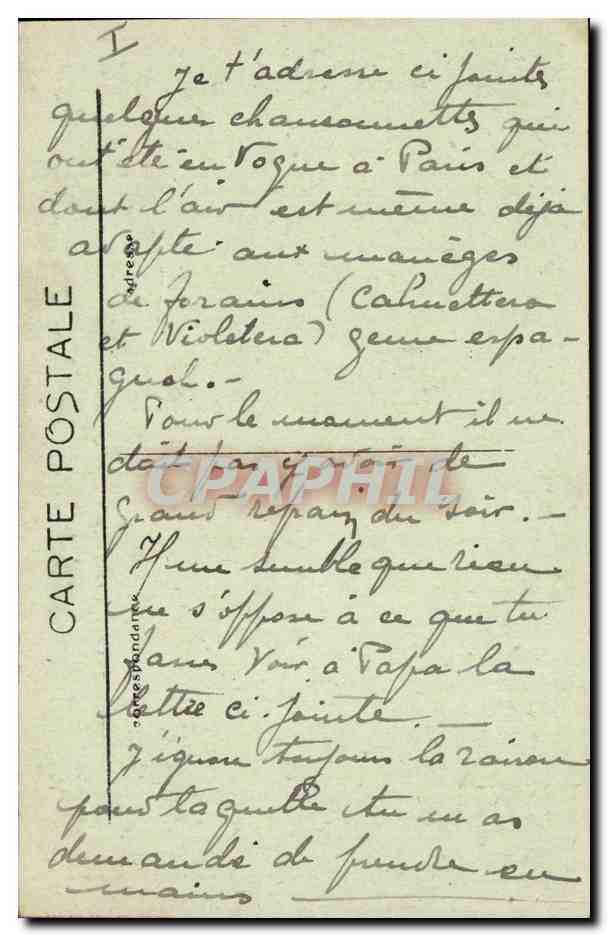 I
Je t'adresse ci jointes
quelques chansonnettes qui
ont été en Vogue à Paris et
dont l'air est même déjà
adapté aux manèges
de forains (
et Violetera) genre espa-
gnol.-
Pour le moment il ne
doit pas y avoir de
grand repas du soir.-
Il me semble que rien
ne s'oppose à ce que tu
fasses Voir à Papa la
lettre ci-jointe.
J'ignore toujours la raison
pour laquelle tu m'as
demandé de prendre en
mains
CARTE POSTALE
adresse
correspondance
CPAPHIL